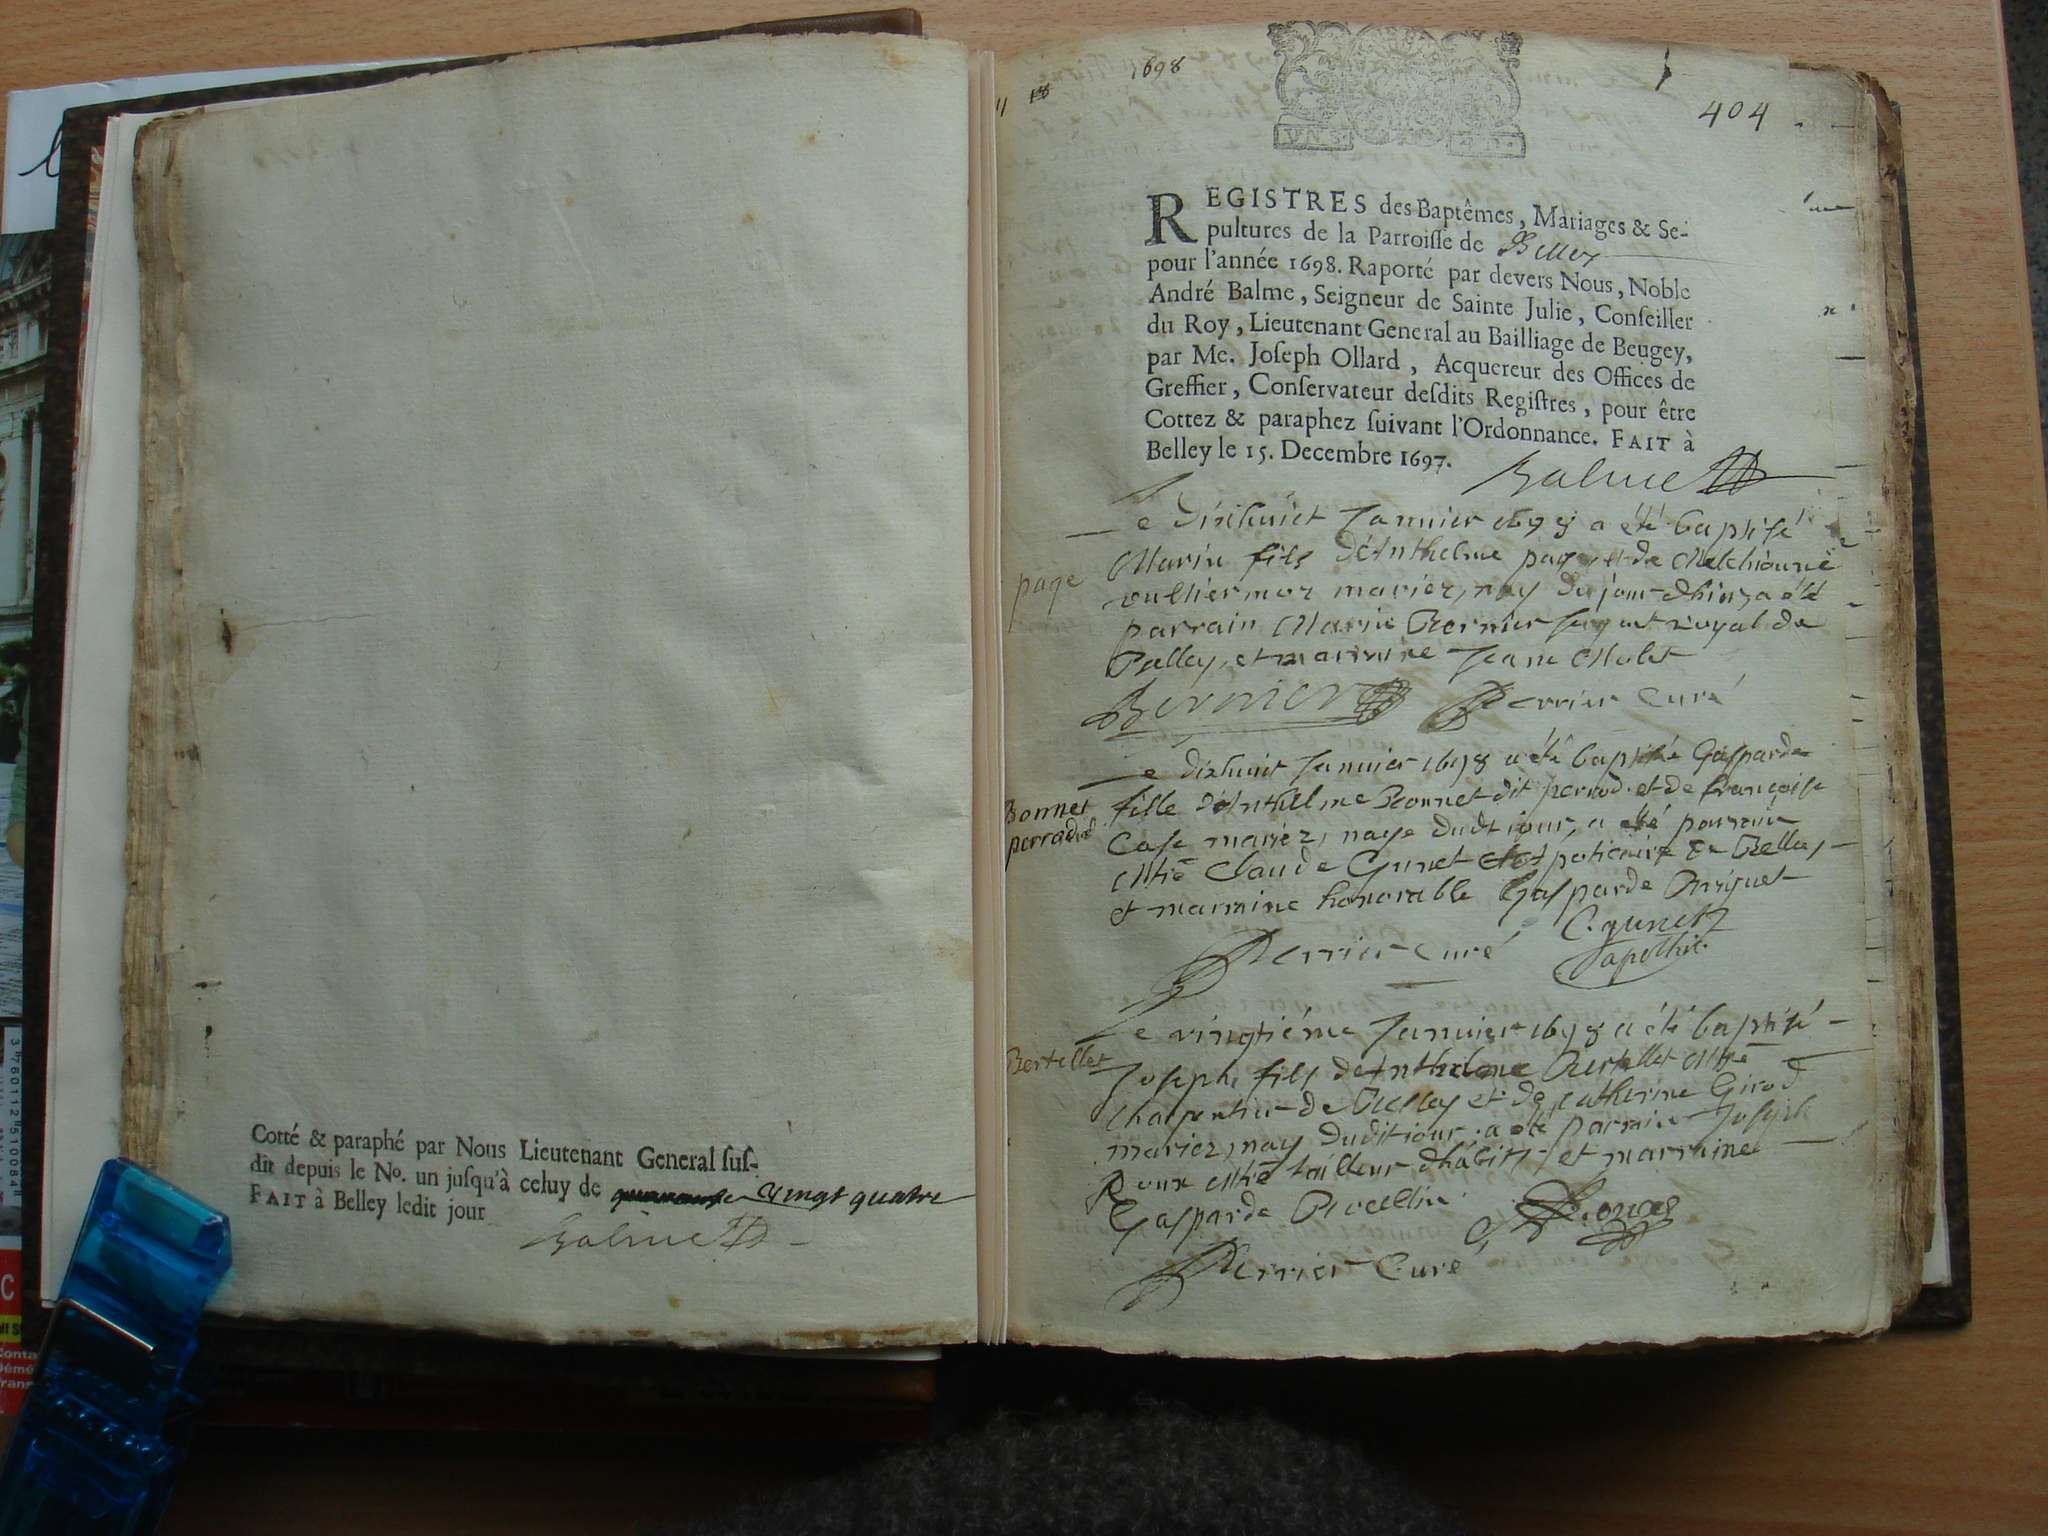 Cotté & paraphé par Nous Lieutenant General suſ-
dit depuis le No. un juſqu'à celuy de vingt quatre
FAIT à Belley ledit jour
Balme
1698
404
REGISTRES des Baptêmes, Mariages & Se-
pultures de la Parroiſſe de Belley
pour l'année 1698. Raporté par devers Nous, Noble
André Balme, Seigneur de Sainte Julie, Conſeiller
du Roy, Lieutenant General au Bailliage de Beugey,
par Me. Joſeph Ollard, Acquereur des Offices de
Greffier, Conſervateur deſdits Regiſtres, pour être
Cottez & paraphez ſuivant l'Ordonnance. FAIT à
Belley le 15. Decembre 1697.
Balme
Le dixhuict Januier 1698 a été baptisé
page
Marin fils d'Anthelme page et de
mariez, nay du jour a été
parrain Marin Bernier royal de
Belley, et marraine Jeane Molet
Bernier Perrier Curé
Le dixhuict Januier 1698 a été baptisée Gasparde
Bonnet
perrod
fille d'Anthelme Bonnet dit perrod et de françoise
mariez, naye dudt iour, a été parrain
Mtre Claude Gunet Apoticaire de Belley
et marraine honorable Gasparde
C. gunet
apothic.
Perrier Curé
Le vingtiéme Januier 1698 a été baptisé
Bertellet
Joseph, fils de Anthelme Bertellet Mtre
Charpentier de Belley et de Catherine Girod
mariez, nay dudit iour a été parrain Joseph
Roux Mtre tailleur d'habits et marraine
Gasparde
Perrier Curé